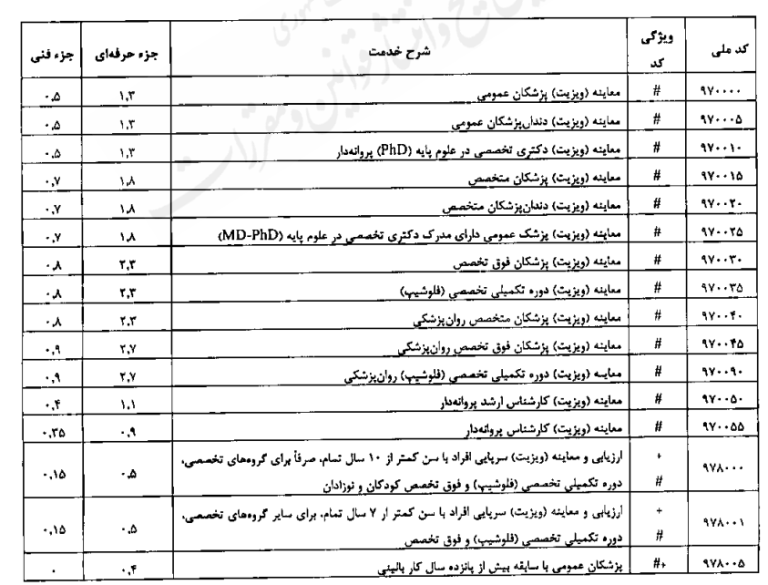 کد ملی | ویژگی کد | شرح خدمت | جزء حرفه‌ای | جزء فنی
۹۷۰۰۰۰ | # | معاینه (ویزیت) پزشکان عمومی | ۱,۳ | ۰,۵
۹۷۰۰۰۵ | # | معاینه (ویزیت) دندان‌پزشکان عمومی | ۱,۳ | ۰,۵
۹۷۰۰۱۰ | # | معاینه (ویزیت) دکتری تخصصی در علوم پایه (PhD) پروانه‌دار | ۱,۳ | ۰,۵
۹۷۰۰۱۵ | # | معاینه (ویزیت) پزشکان متخصص | ۱,۸ | ۰,۷
۹۷۰۰۲۰ | # | معاینه (ویزیت) دندان‌پزشکان متخصص | ۱,۸ | ۰,۷
۹۷۰۰۲۵ | # | معاینه (ویزیت) پزشک عمومی دارای مدرک دکتری تخصصی در علوم پایه (MD-PhD) | ۱,۸ | ۰,۷
۹۷۰۰۳۰ | # | معاینه (ویزیت) پزشکان فوق تخصص | ۲,۳ | ۰,۸
۹۷۰۰۳۵ | # | معاینه (ویزیت) دوره تکمیلی تخصصی (فلوشیپ) | ۲,۳ | ۰,۸
۹۷۰۰۴۰ | # | معاینه (ویزیت) پزشکان متخصص روان‌پزشکی | ۲,۳ | ۰,۸
۹۷۰۰۴۵ | # | معاینه (ویزیت) پزشکان فوق تخصص روان‌پزشکی | ۲,۷ | ۰,۹
۹۷۰۰۹۰ | # | معاینه (ویزیت) دوره تکمیلی تخصصی (فلوشیپ) روان‌پزشکی | ۲,۷ | ۰,۹
۹۷۰۰۵۰ | # | معاینه (ویزیت) کارشناس ارشد پروانه‌دار | ۱,۱ | ۰,۴
۹۷۰۰۵۵ | # | معاینه (ویزیت) کارشناس پروانه‌دار | ۰,۹ | ۰,۳۵
۹۷۸۰۰۰ | + # | ارزیابی و معاینه (ویزیت) سرپایی افراد با سن کمتر از ۱۰ سال تمام، صرفاً برای گروه‌های تخصصی، | ۰,۵ | ۰,۱۵
دوره تکمیلی تخصصی (فلوشیپ) و فوق تخصص کودکان و نوزادان
۹۷۸۰۰۱ | + # | ارزیابی و معاینه (ویزیت) سرپایی افراد با سن کمتر از ۷ سال تمام، برای سایر گروه‌های تخصصی، | ۰,۵ | ۰,۱۵
دوره تکمیلی تخصصی (فلوشیپ) و فوق تخصص
۹۷۸۰۰۵ | #+ | پزشکان عمومی با سابقه بیش از پانزده سال کار بالینی | ۰,۴ | ۰